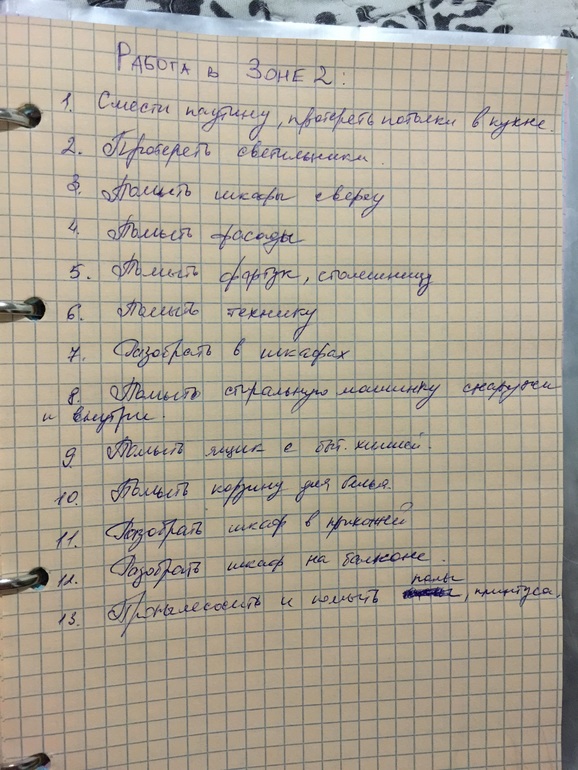 Работа в Зоне 2:
1. Смести паутину, протереть потолки в кухне.
2. Протереть светильники.
3. Помыть шкафы сверху
4. Помыть фасады
5. Помыть фартук, столешницу
6. Помыть технику
7. Разобрать в шкафах
8. Помыть стиральную машинку снаружи
и внутри.
9. Помыть ящик с быт. химией.
10. Помыть корзину для белья.
11. Разобрать шкаф в прихожей
12. Разобрать шкаф на балконе.
13. Пропылесосить и помыть полы, плинтуса.